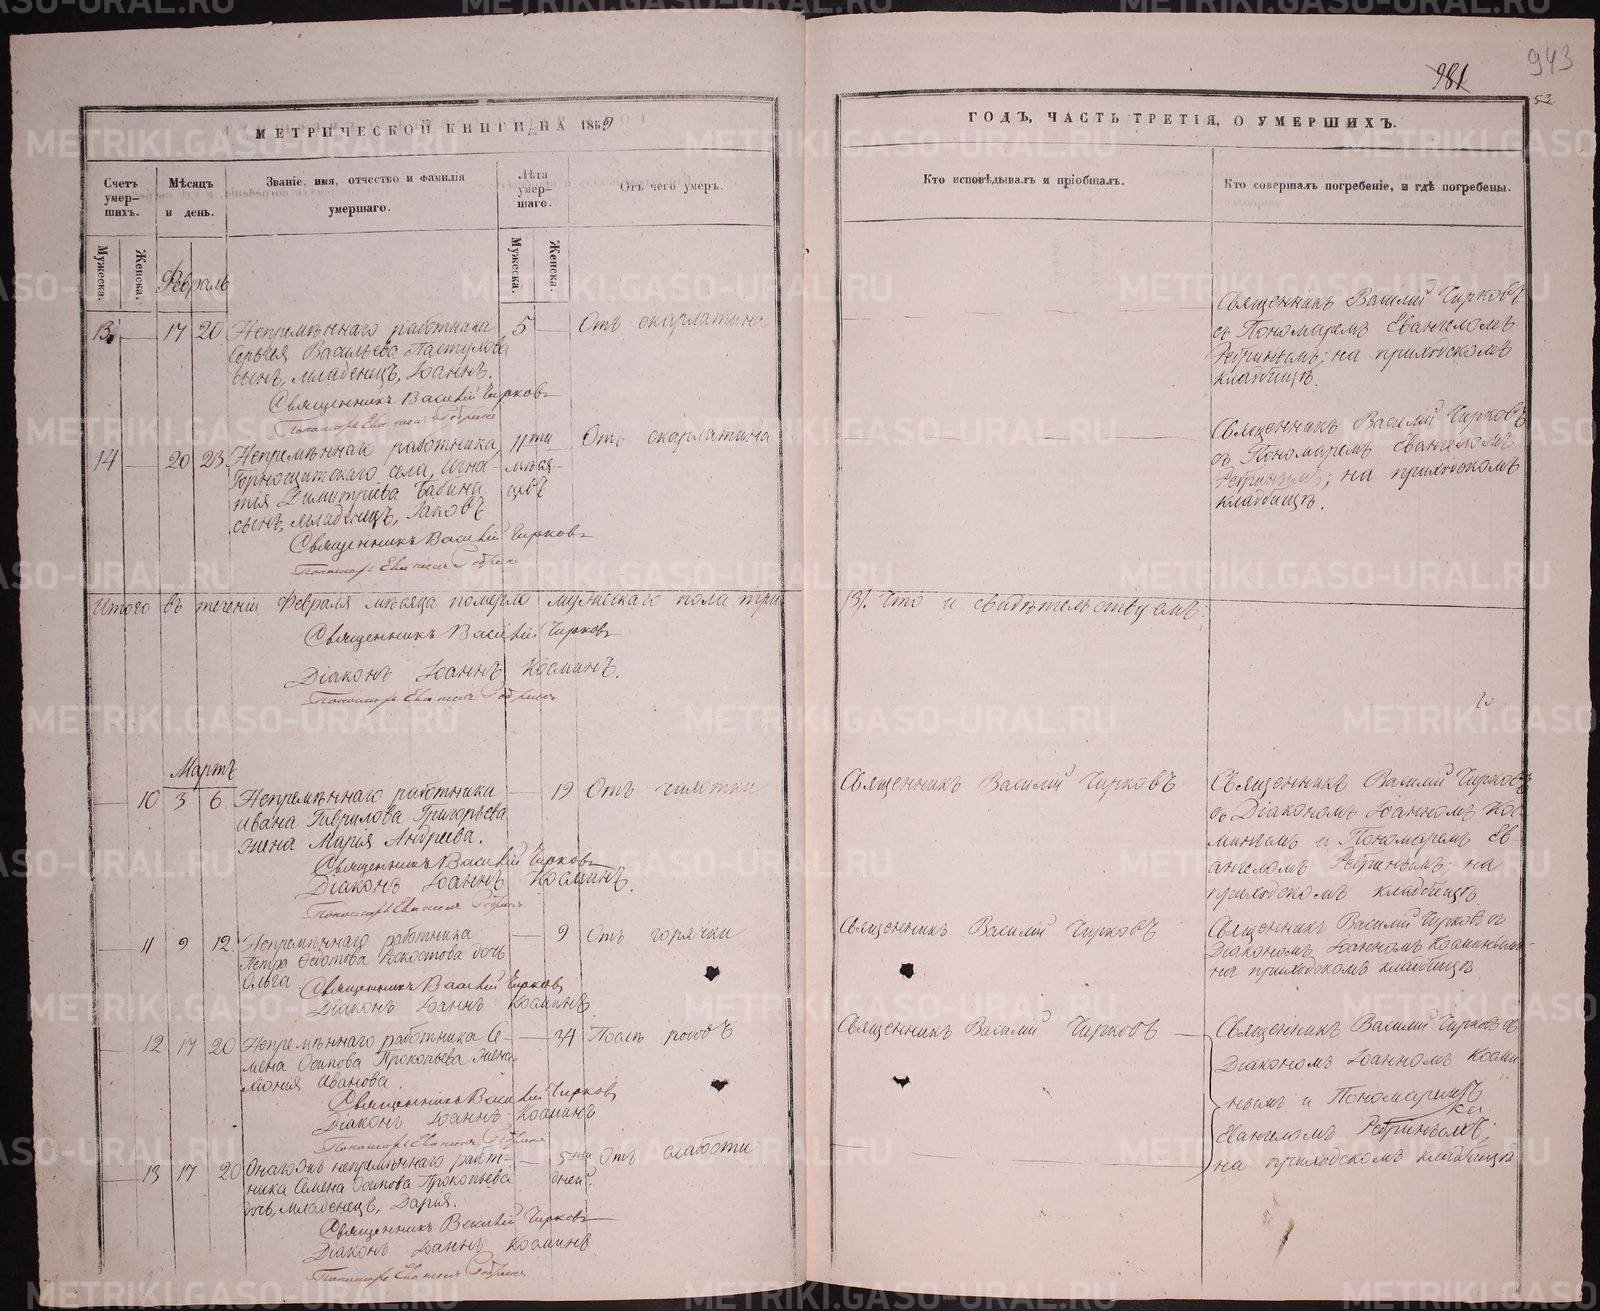 943
981
53.
МЕТРИЧЕСКОЙ КНИГИ НА 1859
ГОДЪ, ЧАСТЬ ТРЕТІЯ, О УМЕРШИХЪ.
Счетъ умер-шихъ.
Мѣсяцъ и день.
Званіе, имя, отчество и фамилія умершаго.
Лѣта умер-шаго.
Отъ чего умеръ.
Кто исповѣдывалъ и пріобщалъ.
Кто совершалъ погребеніе, и гдѣ погребены.
Мужеска.
Женска.
Мужеска.
Женска.
Февраль
13. 17 20 Непремѣннаго работника 5 Отъ скарлатина
Сергѣя Васильева Пастухова
сынъ, младенецъ, Іоаннъ.
Священникъ Василій Чирковъ
Священникъ Василій Чирковъ
съ Пономаремъ Евангеломъ
Ребринымъ; на приходскомъ
кладбищѣ.
14 20 23 Непремѣннаго работника, 11ти Отъ скарлатина
Горнощитскаго села, Игна- мѣся-
тія Димитріева Бабина цовъ
сынъ, младенецъ, Іаковъ
Священникъ Василій Чирковъ
Священникъ Василій Чирковъ
съ Пономаремъ Евангеломъ
Ребринымъ; на приходскомъ
кладбищѣ.
Итого въ теченіи Февраля мѣсяца померло мужескаго пола три /3/. Что и свидѣтельствуемъ:
Священникъ Василій Чирковъ
Діаконъ Іоаннъ Косминъ.
Мартъ
10 3 6 Непремѣннаго работника 19 Отъ чахотки
Ивана Гаврилова Григорьева
жена Марія Андреева.
Священникъ Василій Чирковъ
Діаконъ Іоаннъ Косминъ.
Священникъ Василій Чирковъ
Священникъ Василій Чирковъ
съ Діакономъ Іоанномъ Кос-
минымъ и Пономаремъ Ев-
ангеломъ Ребринымъ; на
приходскомъ кладбищѣ
11 9 12 Непремѣннаго работника 9 Отъ горячки
Петра Федотова дочь
Ольга
Священникъ Василій Чирковъ
Діаконъ Іоаннъ Косминъ.
Священникъ Василій Чирковъ
Священникъ Василій Чирковъ съ
Діакономъ Іоанномъ Косминымъ
на приходскомъ кладбищѣ
12 17 20 Непремѣннаго работника Се- 34 Послѣ родовъ
мена Осипова Прокопьева жена
Иванова.
Священникъ Василій Чирковъ
Діаконъ Іоаннъ Косминъ
Священникъ Василій Чирковъ
Священникъ Василій Чирковъ съ
Діакономъ Іоанномъ Косми
нымъ и Пономаремъ
Евангеломъ Ребринымъ;
на приходскомъ кладбищѣ
13 17 20 Онагожъ непремѣннаго работ- 5ти Отъ слабости
ника Семена Осипова Прокопьева дней.
дочь, младенецъ, Дарія.
Священникъ Василій Чирковъ
Діаконъ Іоаннъ Косминъ
METRIKI.GASO-URAL.RU